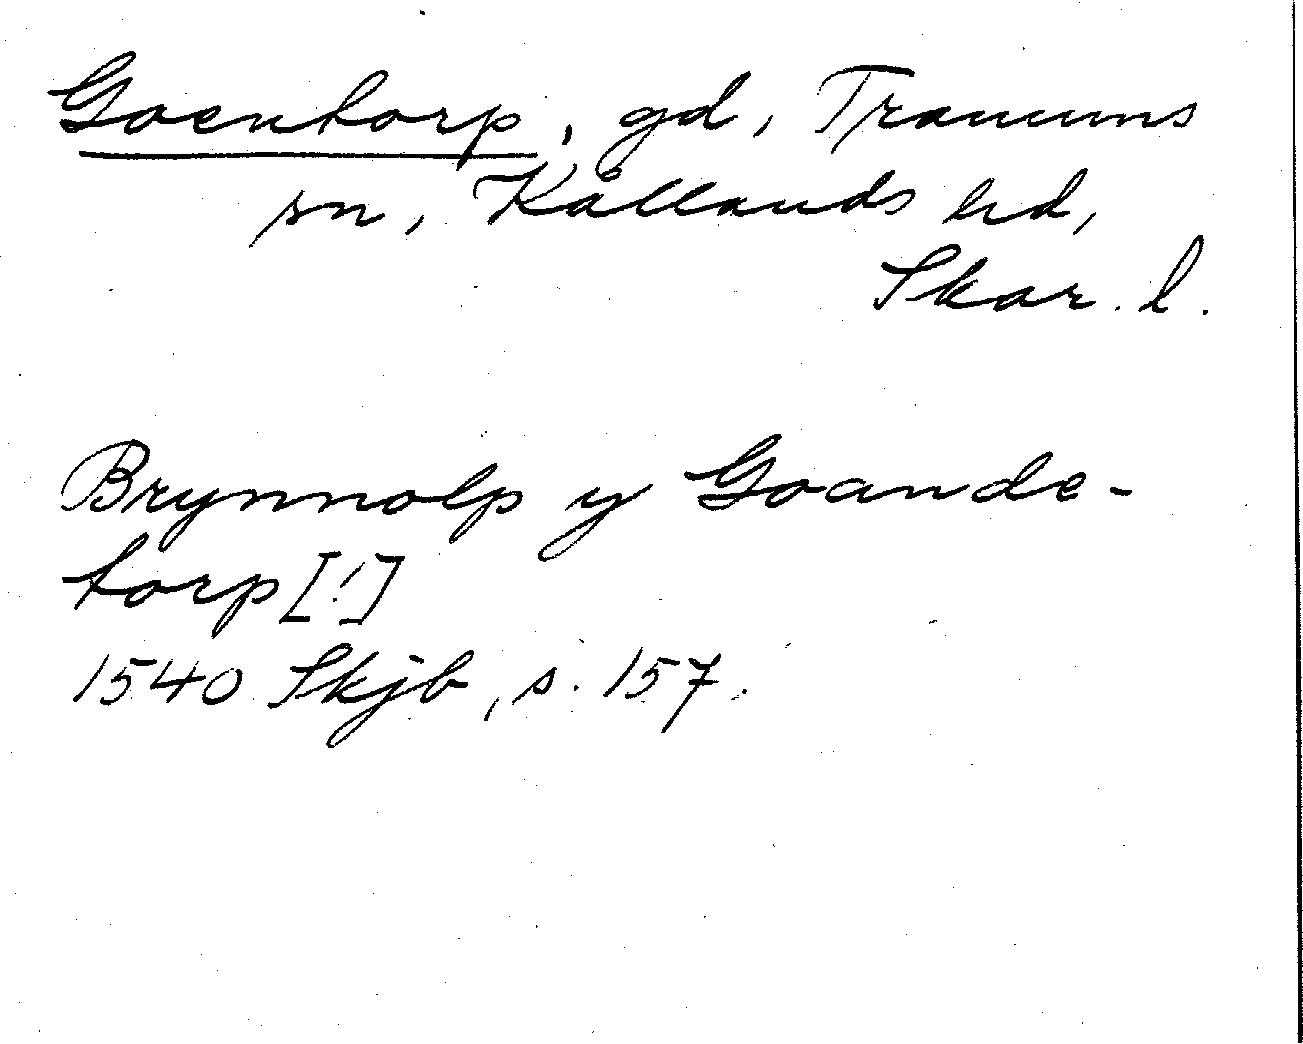 Goentorp, gd, Tranums
sn, Kållands hd,
Skar. l.
Brynnolp y Goande-
torp [!]
1540 Skjb, s. 157.